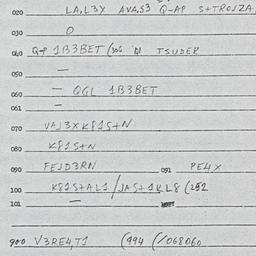 020 LA,L3X AVA,S3 Q-AP S+TROJZA
030 O
040 Q-P 1B3BET TSUDER
050 —
060 — QGL 1B3BET
061 —
070 VAJ3XK81S+N
080 K81S+N
090 FEJD3RN 091 PE4X
100 K81S+AL1/JAS+1KL8 (252
101 —
900 V3RE4,T1 (994 (/068060